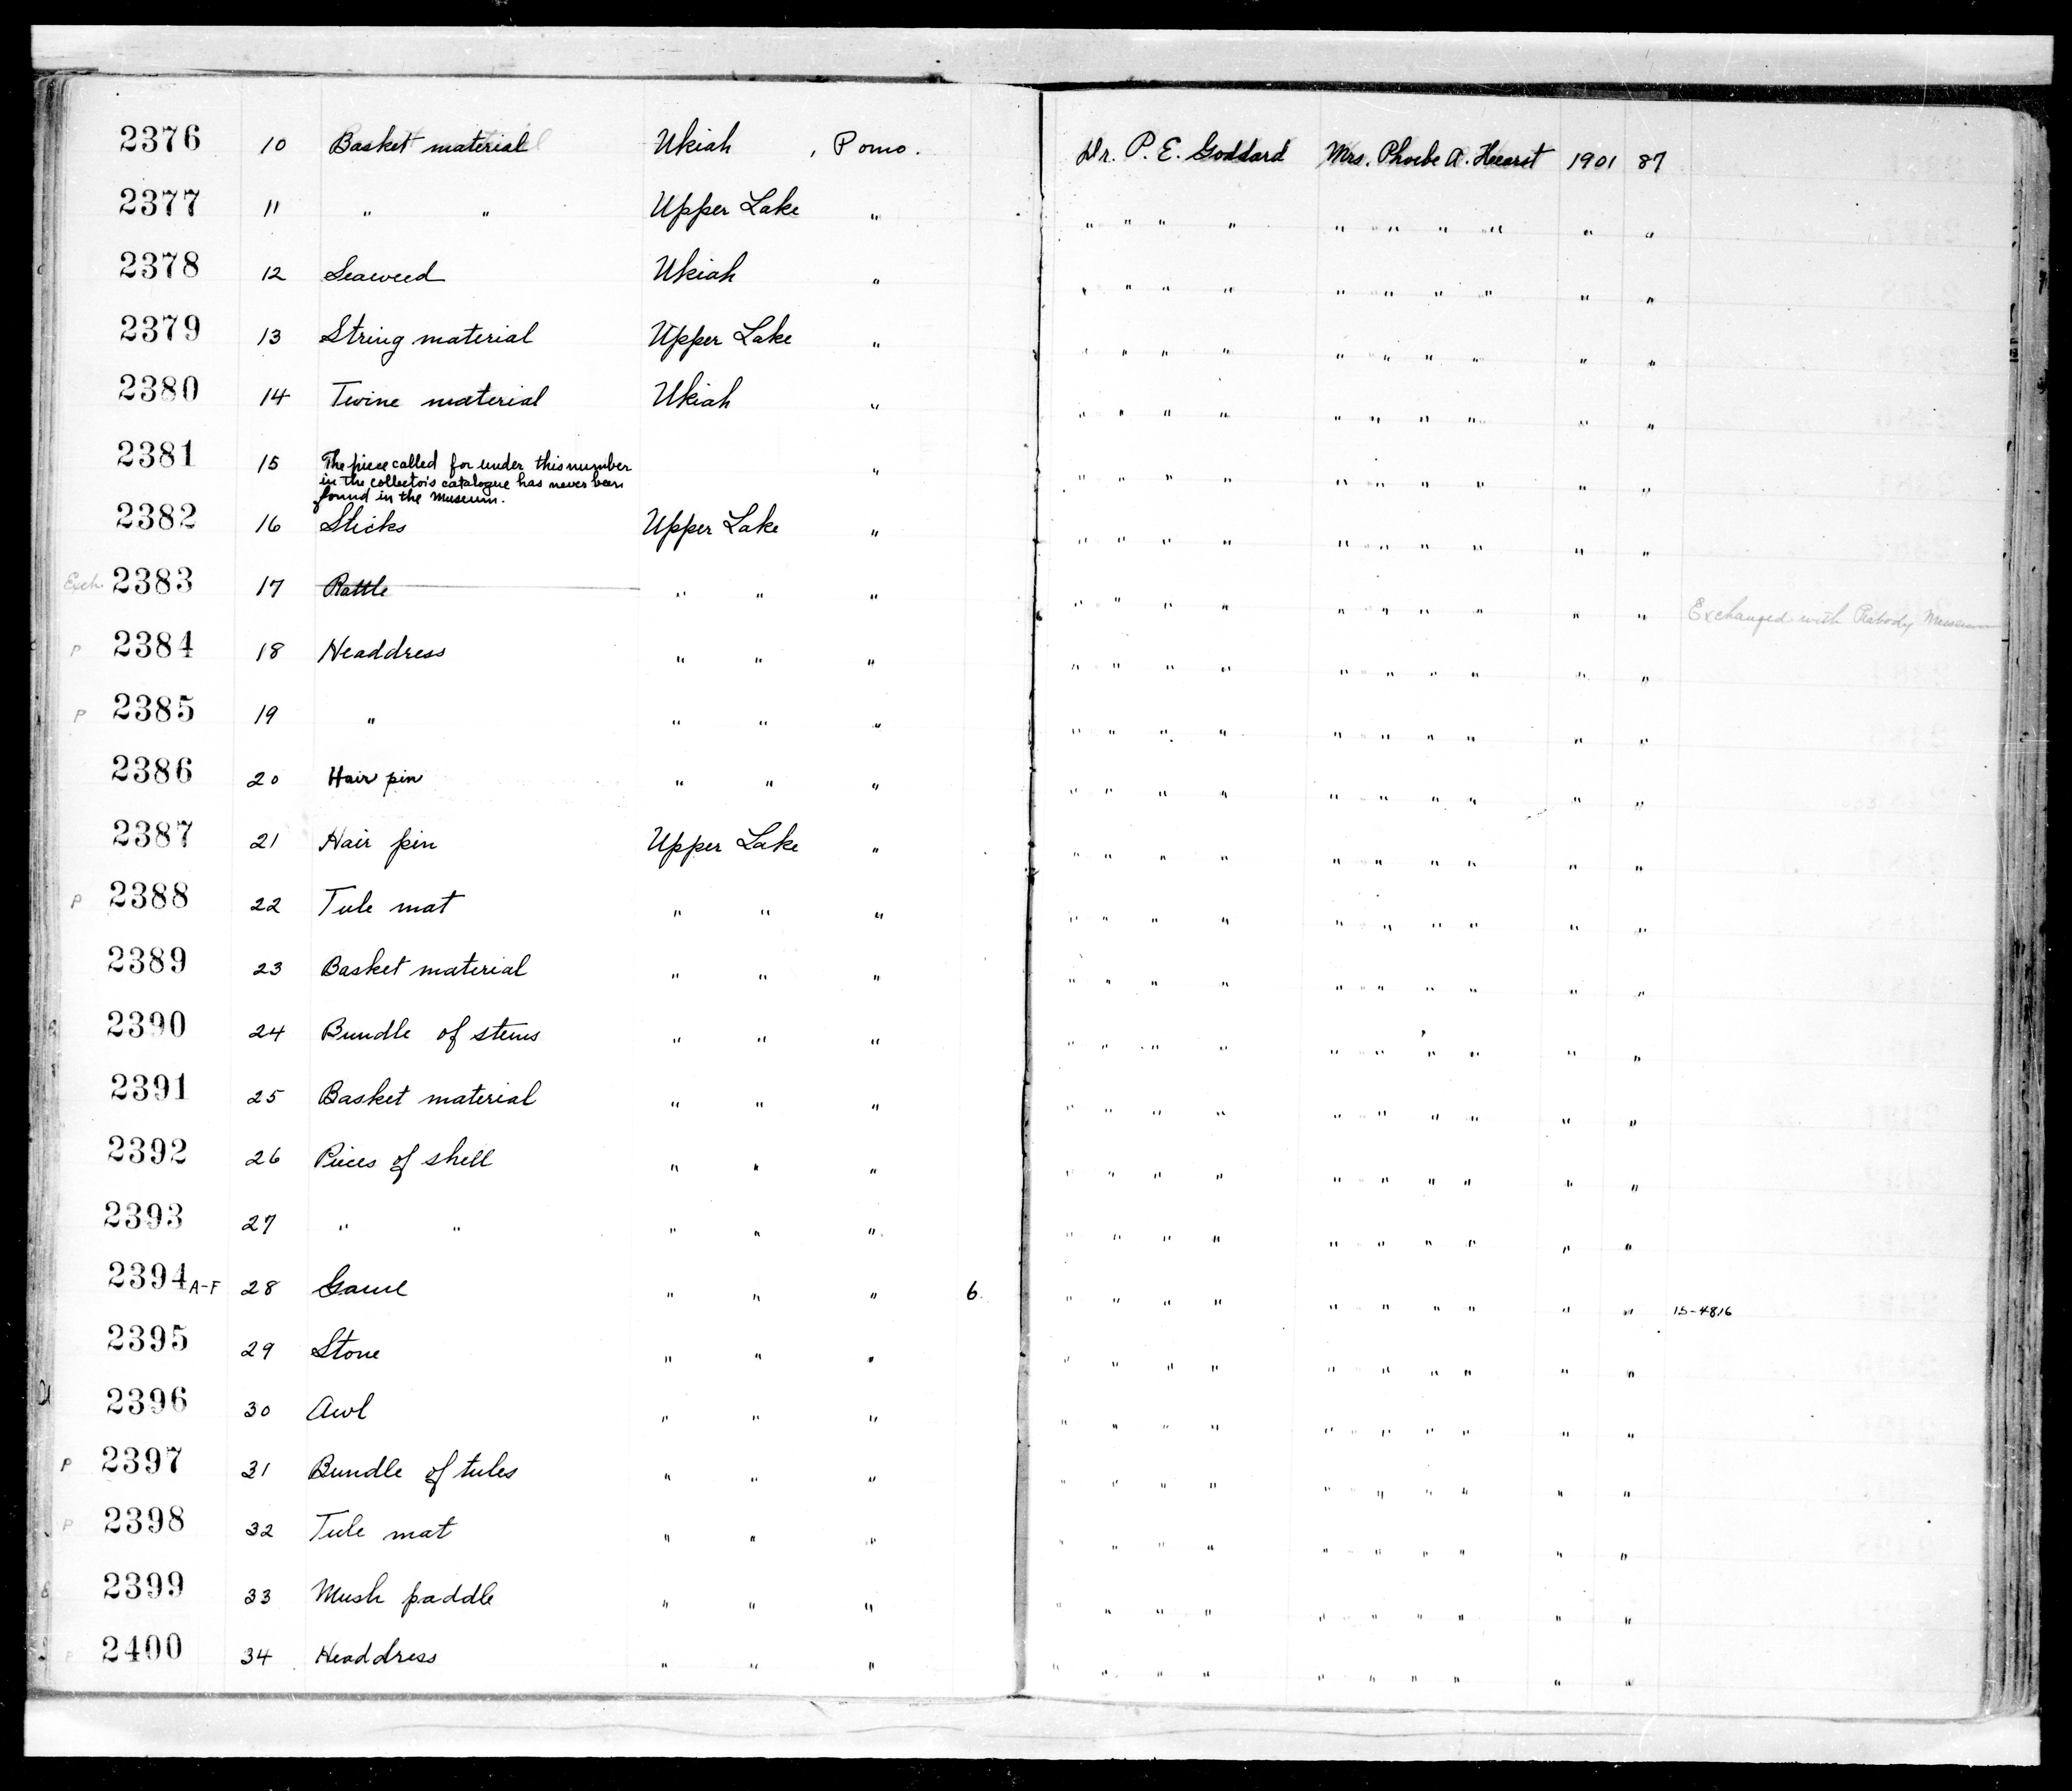 2376 10 Basket material Ukiah , Pomo. Dr. P. E. Goddard Mrs. Phoebe A. Hearst 1901 87
2377 11 " " Upper Lake " " " " " " " " " " "
2378 12 Seaweed Ukiah " " " " " " " " " " "
2379 13 String material Upper Lake " " " " " " " " " " "
2380 14 Twine material Ukiah " " " " " " " " " " "
2381 15 The piece called for under this number " " " " " " " " " " "
in the collector's catalogue has never been
found in the Museum.
2382 16 Sticks Upper Lake " " " " " " " " " " "
Exch. 2383 17 Rattle " " " " " " " " " " " " " Exchanged with Peabody Museum
P 2384 18 Headdress " " " " " " " " " " " " "
P 2385 19 " " " " " " " " " " " " " "
2386 20 Hair pin " " " " " " " " " " " " "
2387 21 Hair pin Upper Lake " " " " " " " " " " "
P 2388 22 Tule mat " " " " " " " " " " " " "
2389 23 Basket material " " " " " " " " " " " " "
2390 24 Bundle of stems " " " " " " " " " " " " "
2391 25 Basket material " " " " " " " " " " " " "
2392 26 Pieces of shell " " " " " " " " " " " " "
2393 27 " " " " " " " " " " " " " " "
2394 A-F 28 Game " " " 6 " " " " " " " " " " 15-4816
2395 29 Stone " " " " " " " " " " " " "
2396 30 Awl " " " " " " " " " " " " "
P 2397 31 Bundle of tules " " " " " " " " " " " " "
P 2398 32 Tule mat " " " " " " " " " " " " "
2399 33 Mush paddle " " " " " " " " " " " " "
P 2400 34 Headdress " " " " " " " " " " " " "